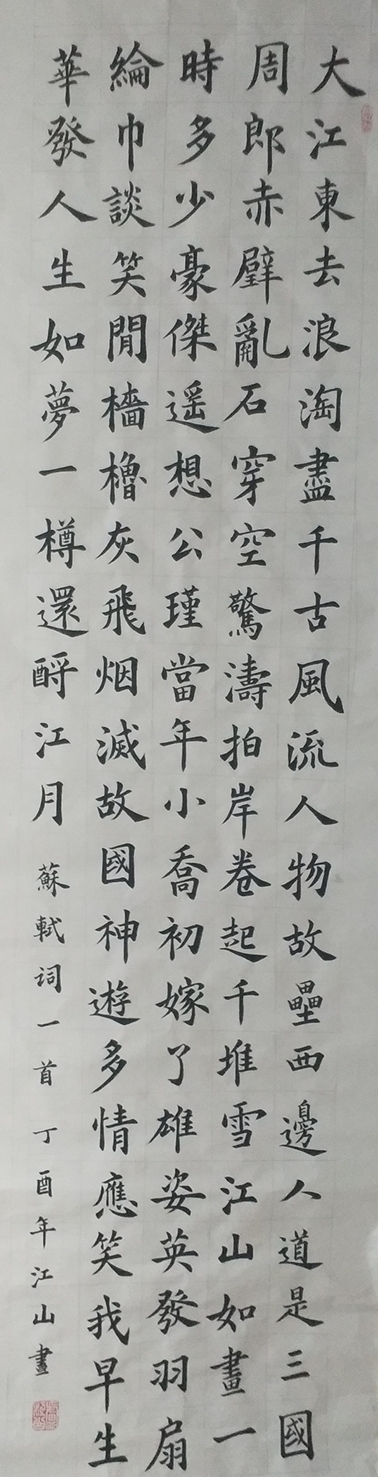 大江東去浪淘盡千古風流人物故壘西邊人道是三國
周郎赤壁亂石穿空驚濤拍岸卷起千堆雪江山如畫一
時多少豪傑遥想公瑾當年小喬初嫁了雄姿英發羽扇
綸巾談笑間檣櫓灰飛烟滅故國神遊多情應笑我早生
華發人生如夢一樽還酹江月 蘇軾詞一首 丁酉年江山書